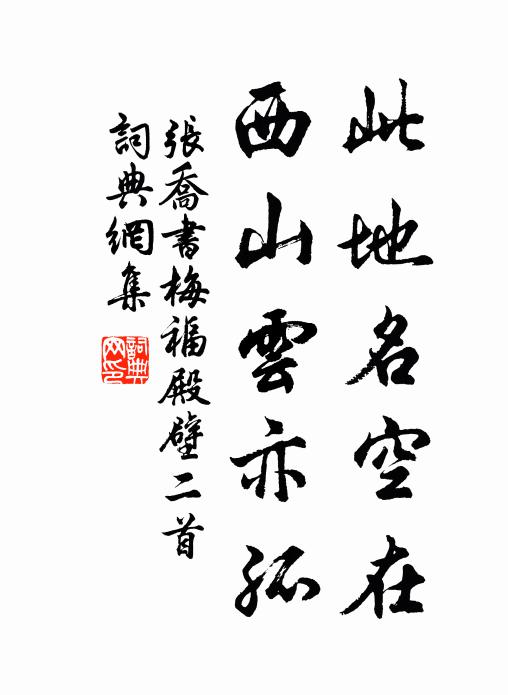 此地名空在
西山雲亦孤
張喬書梅福殿壁二首
詞典網集
詞典网印